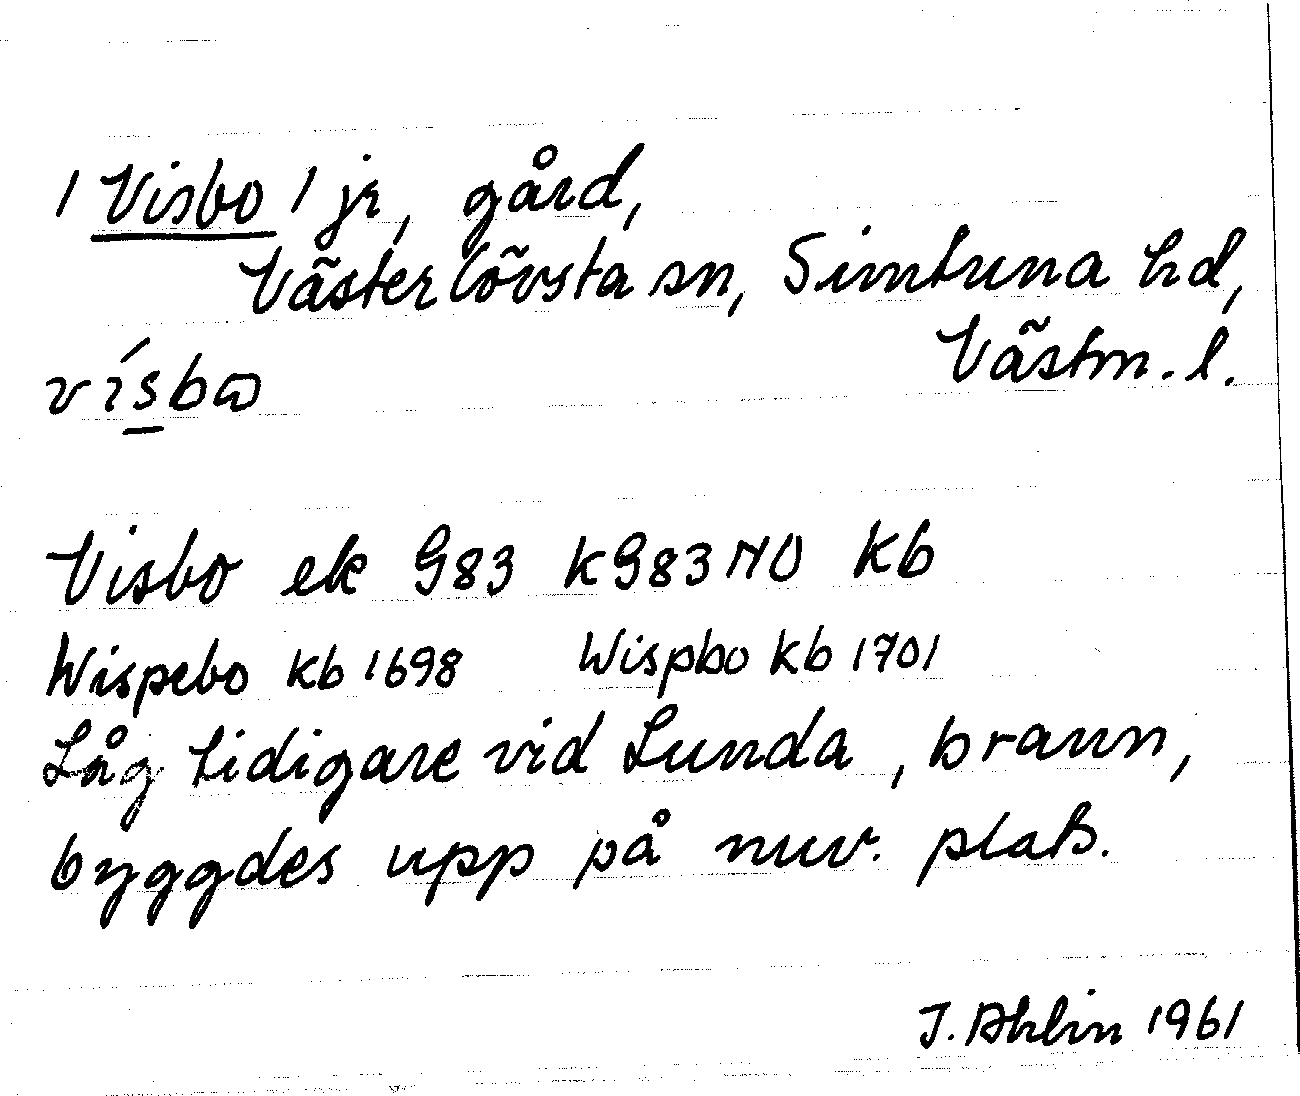 / Visbo / jr, gård,
Västerlövsta sn, Simtuna hd,
Västm. l.
vísbω
Visbo ek G83 KG83NO Kb
Wispebo Kb 1698 Wispbo Kb 1701
Låg tidigare vid Lunda, brann,
byggdes upp på nuv. plats.
J. Ahlin 1961